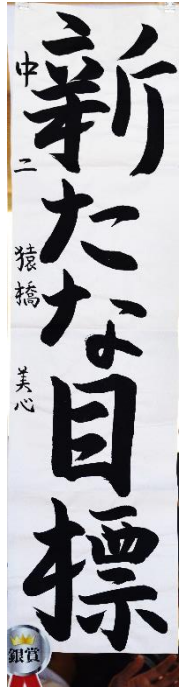 新たな目標
中二 猿橋 美心
銀賞